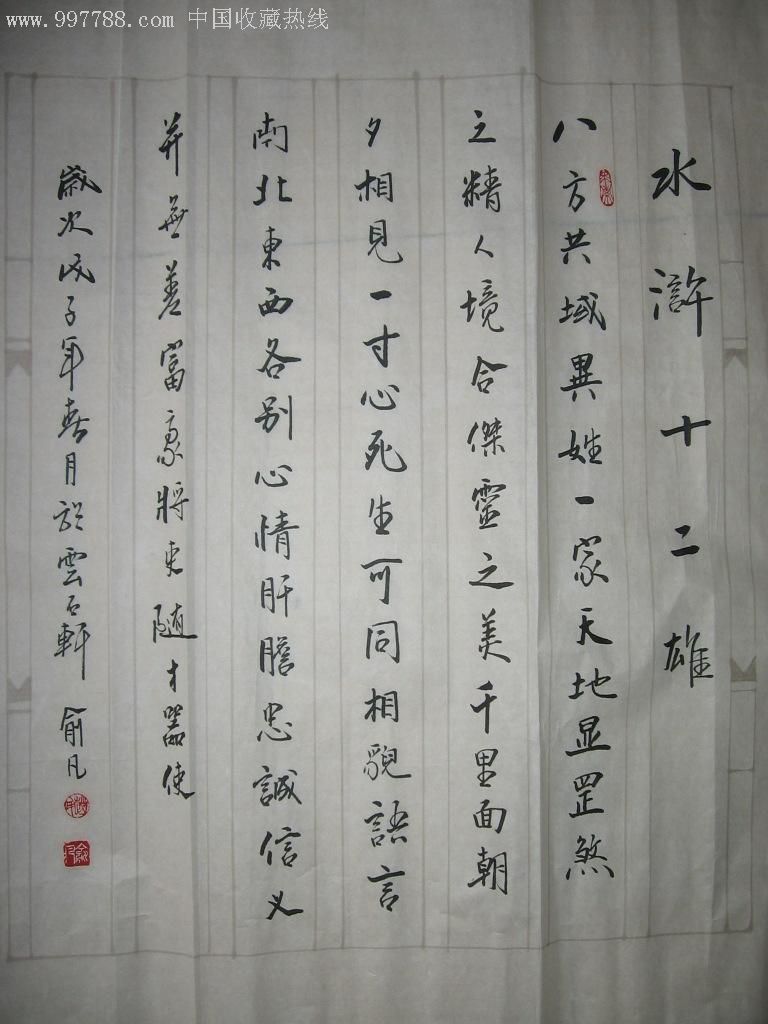 www.997788.com 中国收藏热线
水滸十二雄
八方共域異姓一家天地显罡煞
之精人境合傑靈之美千里面朝
夕相見一寸心死生可同相貌語言
南北東西各别心情肝膽忠誠信义
并無差富豪將吏随才器使
歲次戊子年春月於雲石軒 俞凡